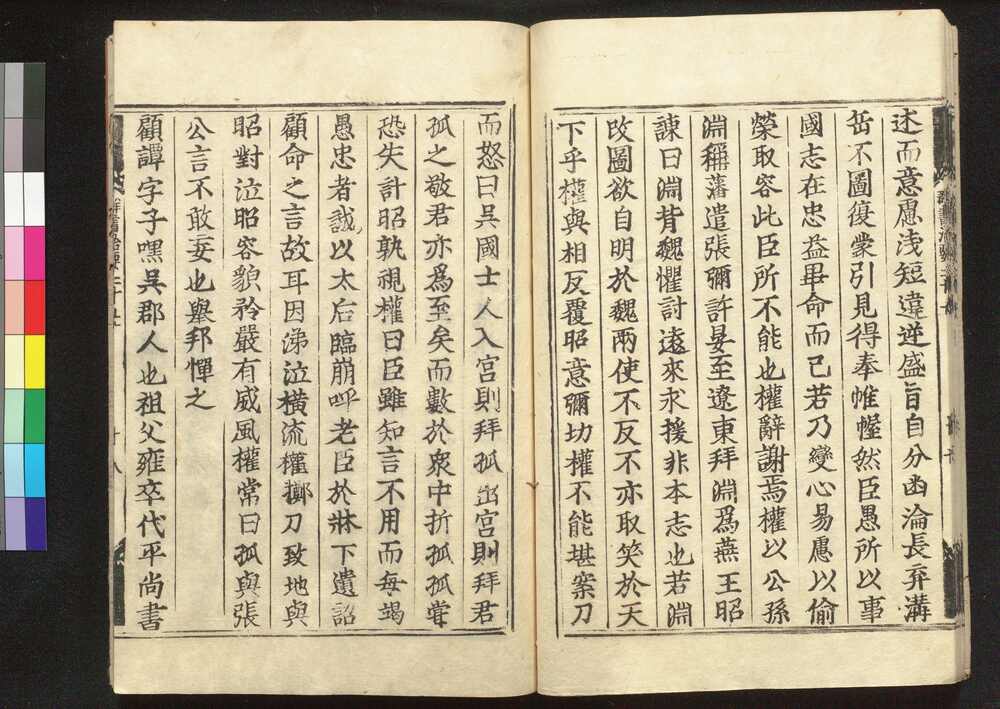 述而意慮淺短違逆盛旨自分幽淪長弃溝
岳不圖復蒙引見得奉帷幄然臣愚所以事
國志在忠益畢命而已若乃變心易慮以偷
榮取容此臣所不能也權辭謝焉權以公孫
淵稱藩遣張彌許晏至遼東拜淵爲燕王昭
諫曰淵背魏懼討遠來求援非本志也若淵
改圖欲自明於魏兩使不反不亦取笑於天
下乎權與相反覆昭意彌切權不能堪案刀
而怒曰吳國士人入宮則拜孤出宮則拜君
孤之敬君亦爲至矣而數於衆中折孤孤甞
恐失計昭孰視權曰臣雖知言不用而每竭
愚忠者誠以太后臨崩呼老臣於牀下遺詔
顧命之言故耳因涕泣橫流權擲刀致地與
昭對泣昭容貌矜嚴有威風權常曰孤與張
公言不敢妄也舉邦憚之
顧譚字子嘿吳郡人也祖父雍卒代平尚書
十八